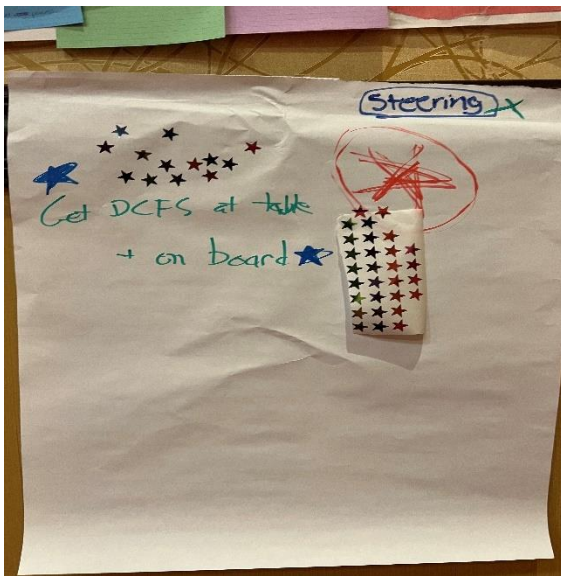 Steering
Get DCFS at table
+ on board